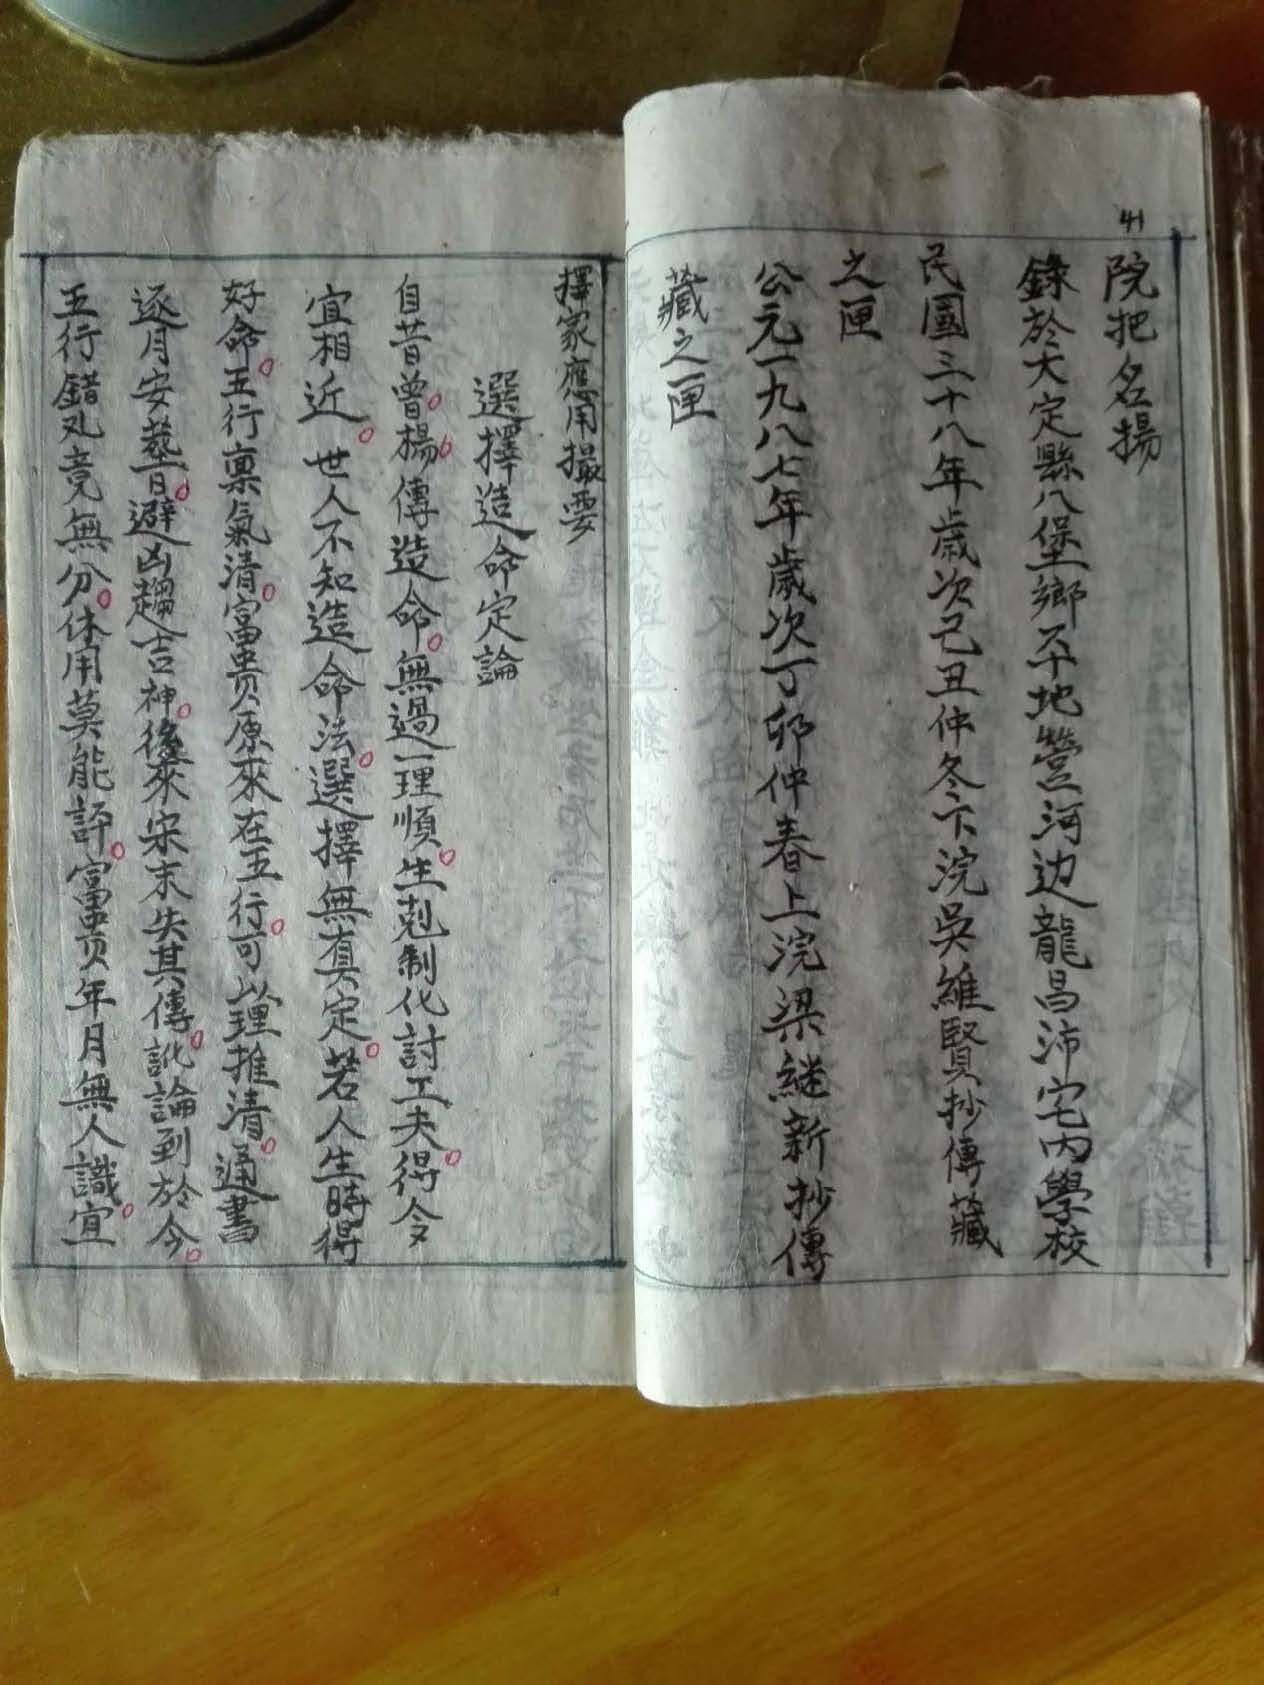 41
院把名揚
錄於大定縣八堡鄉不地營河边龍昌沛宅内學校
民國三十八年歲次己丑仲冬下浣吳維賢抄傳藏
之匣
公元一九八七年歲次丁卯仲春上浣梁継新抄傳
藏之匣
擇家應用撮要
選擇造命定論
自昔曾楊傳造命無過一理順生剋制化討工夫得令
宜相近世人不知造命法選擇無真定若人生時得
好命五行稟氣清富貴原來在五行可以理推清通書
逐月安葬日避凶趨吉神後來宋末失其傳訛論到於今
五行錯乱竟無分体用莫能評富貴年月無人識宜